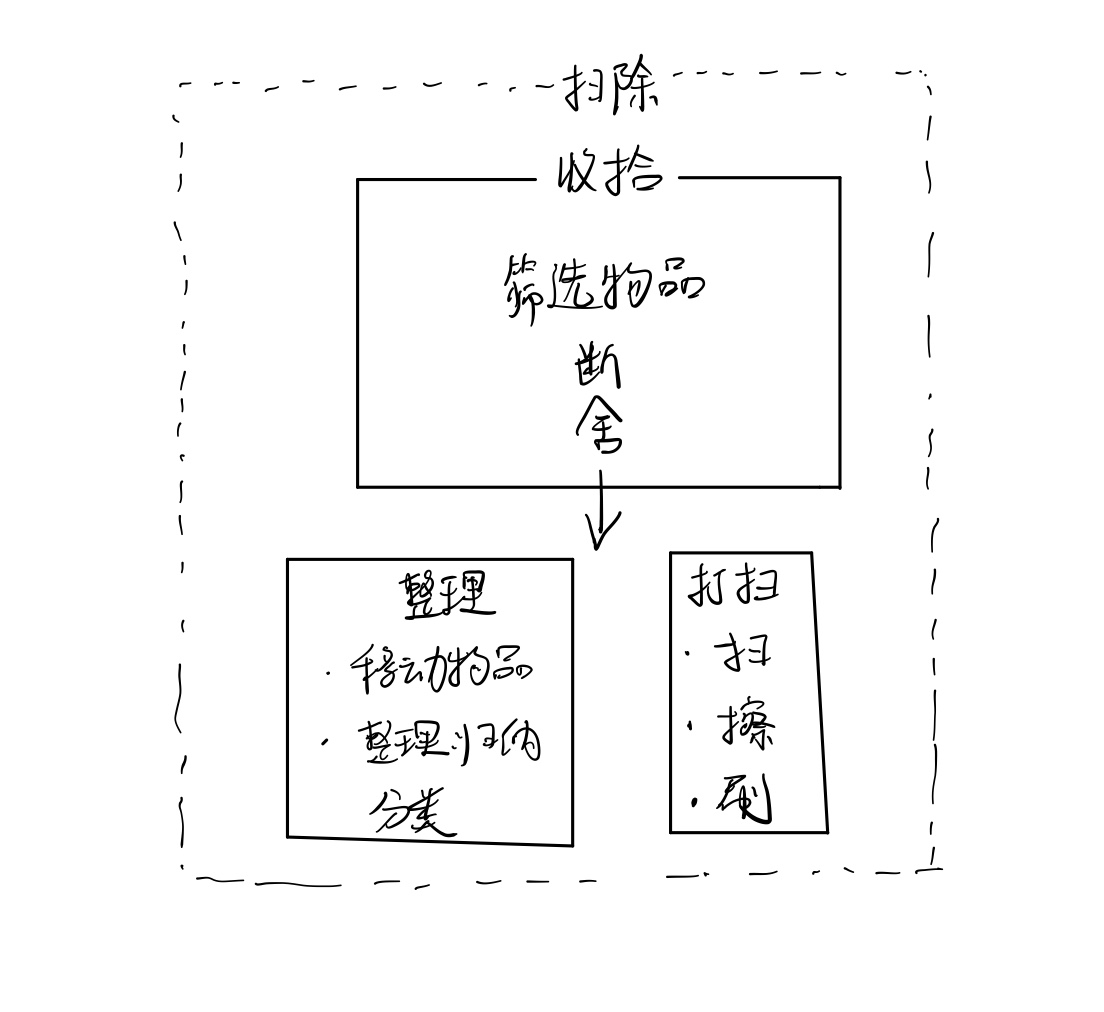 扫除
收拾
筛选物品
断
舍
整理
· 移动物品
· 整理归纳
分类
打扫
· 扫
· 擦
· 刷